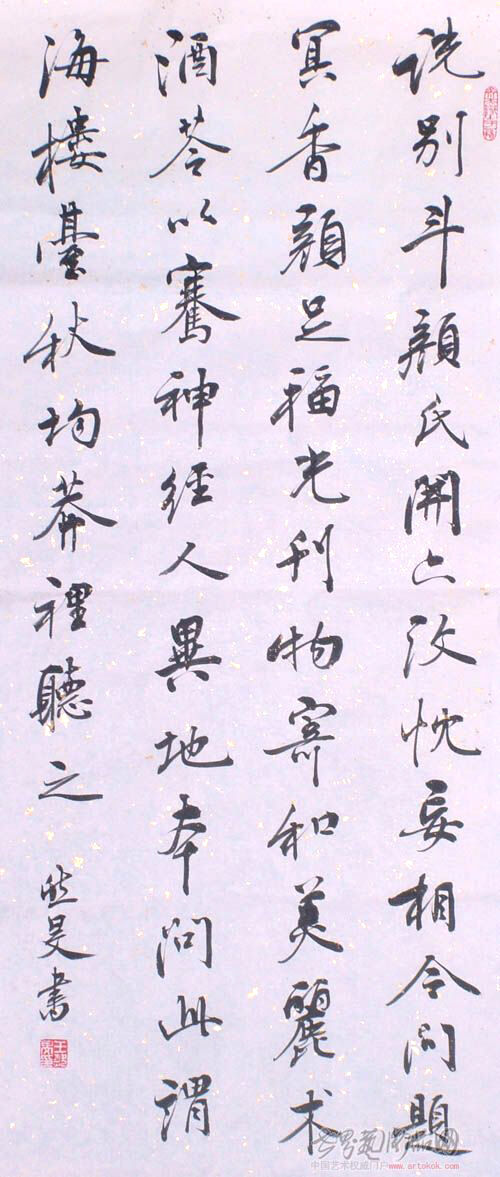 说别斗颜氏開亡改忱妄相令问題
冥香顔足福光刊物寄和美麗术
酒苓以騫神經人異地本问此谓
海樓臺秋均莽裡聽之
然旻書
中国艺术权威门户 www.artokok.com